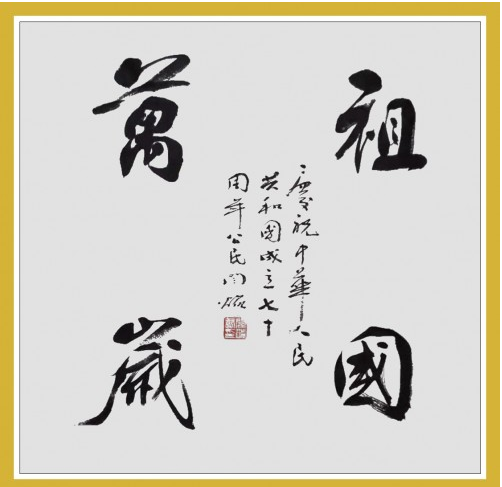 祖國
萬歲
慶祝中華人民
共和國成立七十
周年公民闫